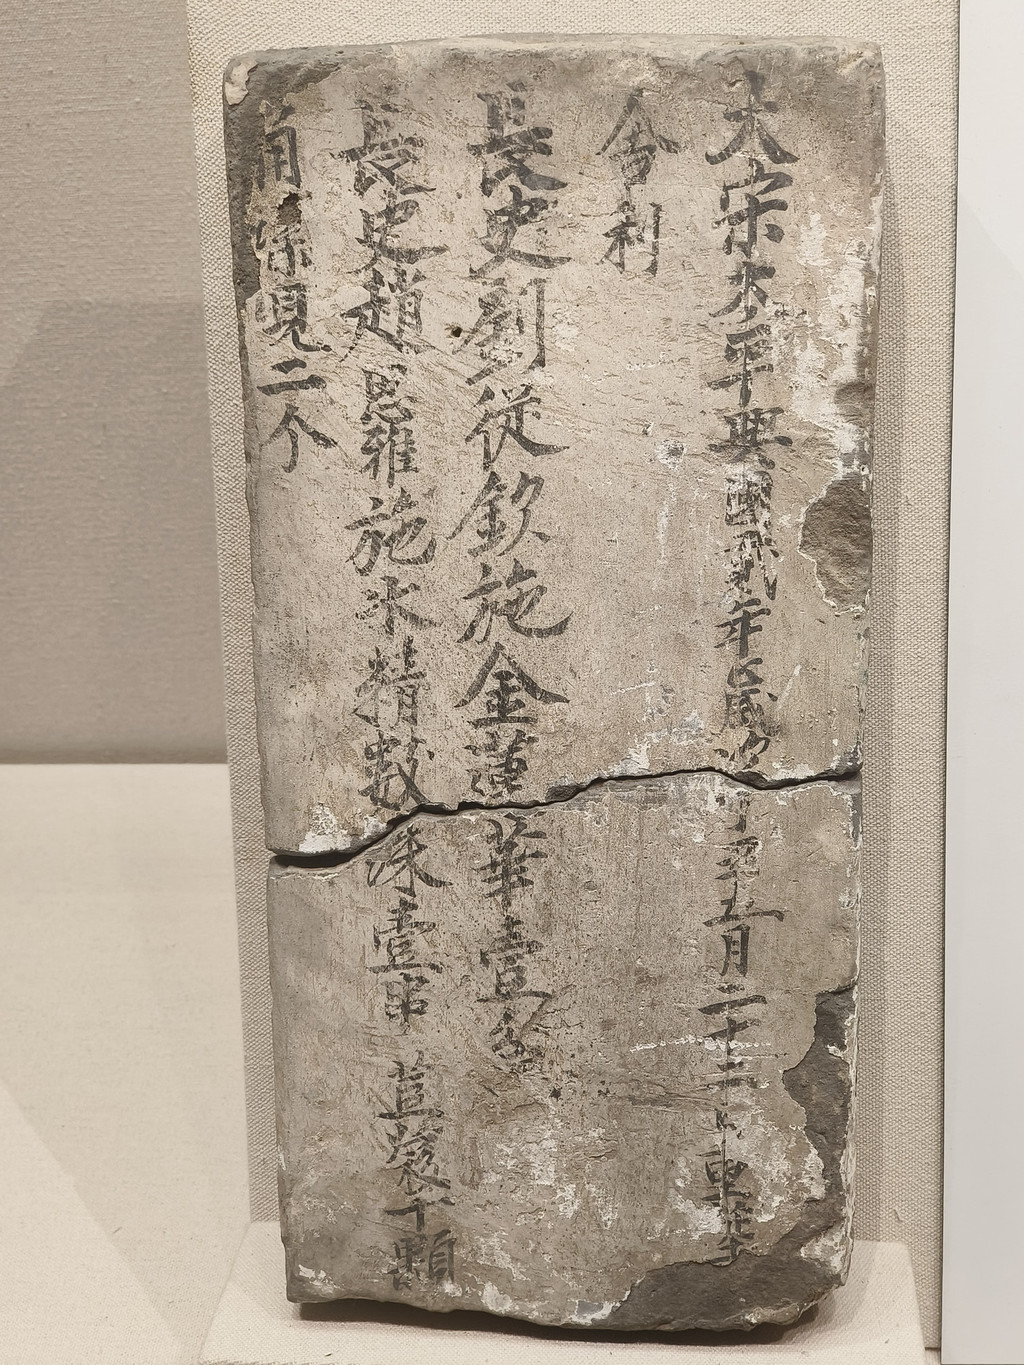 大宋太平興國貳年歲次丁丑五月二十二日重葬
舍利
長史劉從欽施金蓮華壹朵
長史趙思施水精數珠壹串 荳蔲千顆
二个